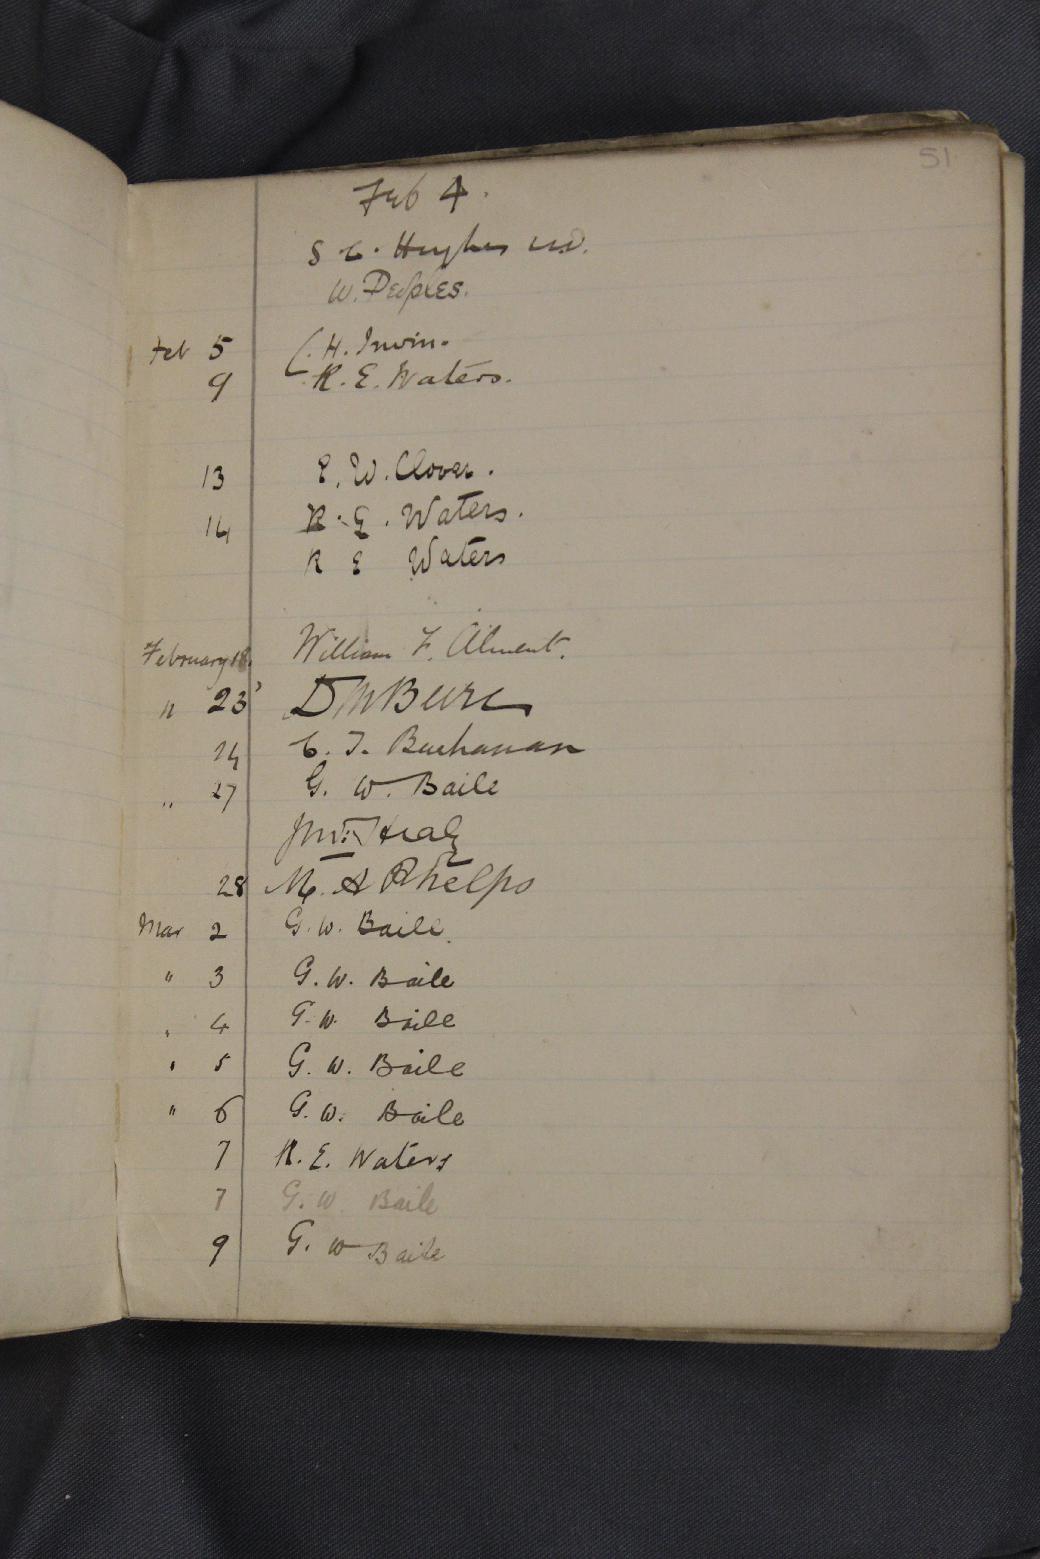 51
Feb 4.
S C. Hughes
W. Peoples.
Feb 5 C. H. Irwin.
9 R. E. Waters.
13 E. W. Clover.
14 R. E. Waters.
R E Waters
February 18. William F. Alment.
" 23
24 C. J. Buchanan
" 27 G. W. Baile
Healy
28 M. A Phelps
Mar 2 G. W. Baile.
" 3 G. W. Baile
" 4 G. W. Baile
" 5 G. W. Baile
" 6 G. W. Baile
7 R. E. Waters
7 G. W. Baile
9 G. W Baile